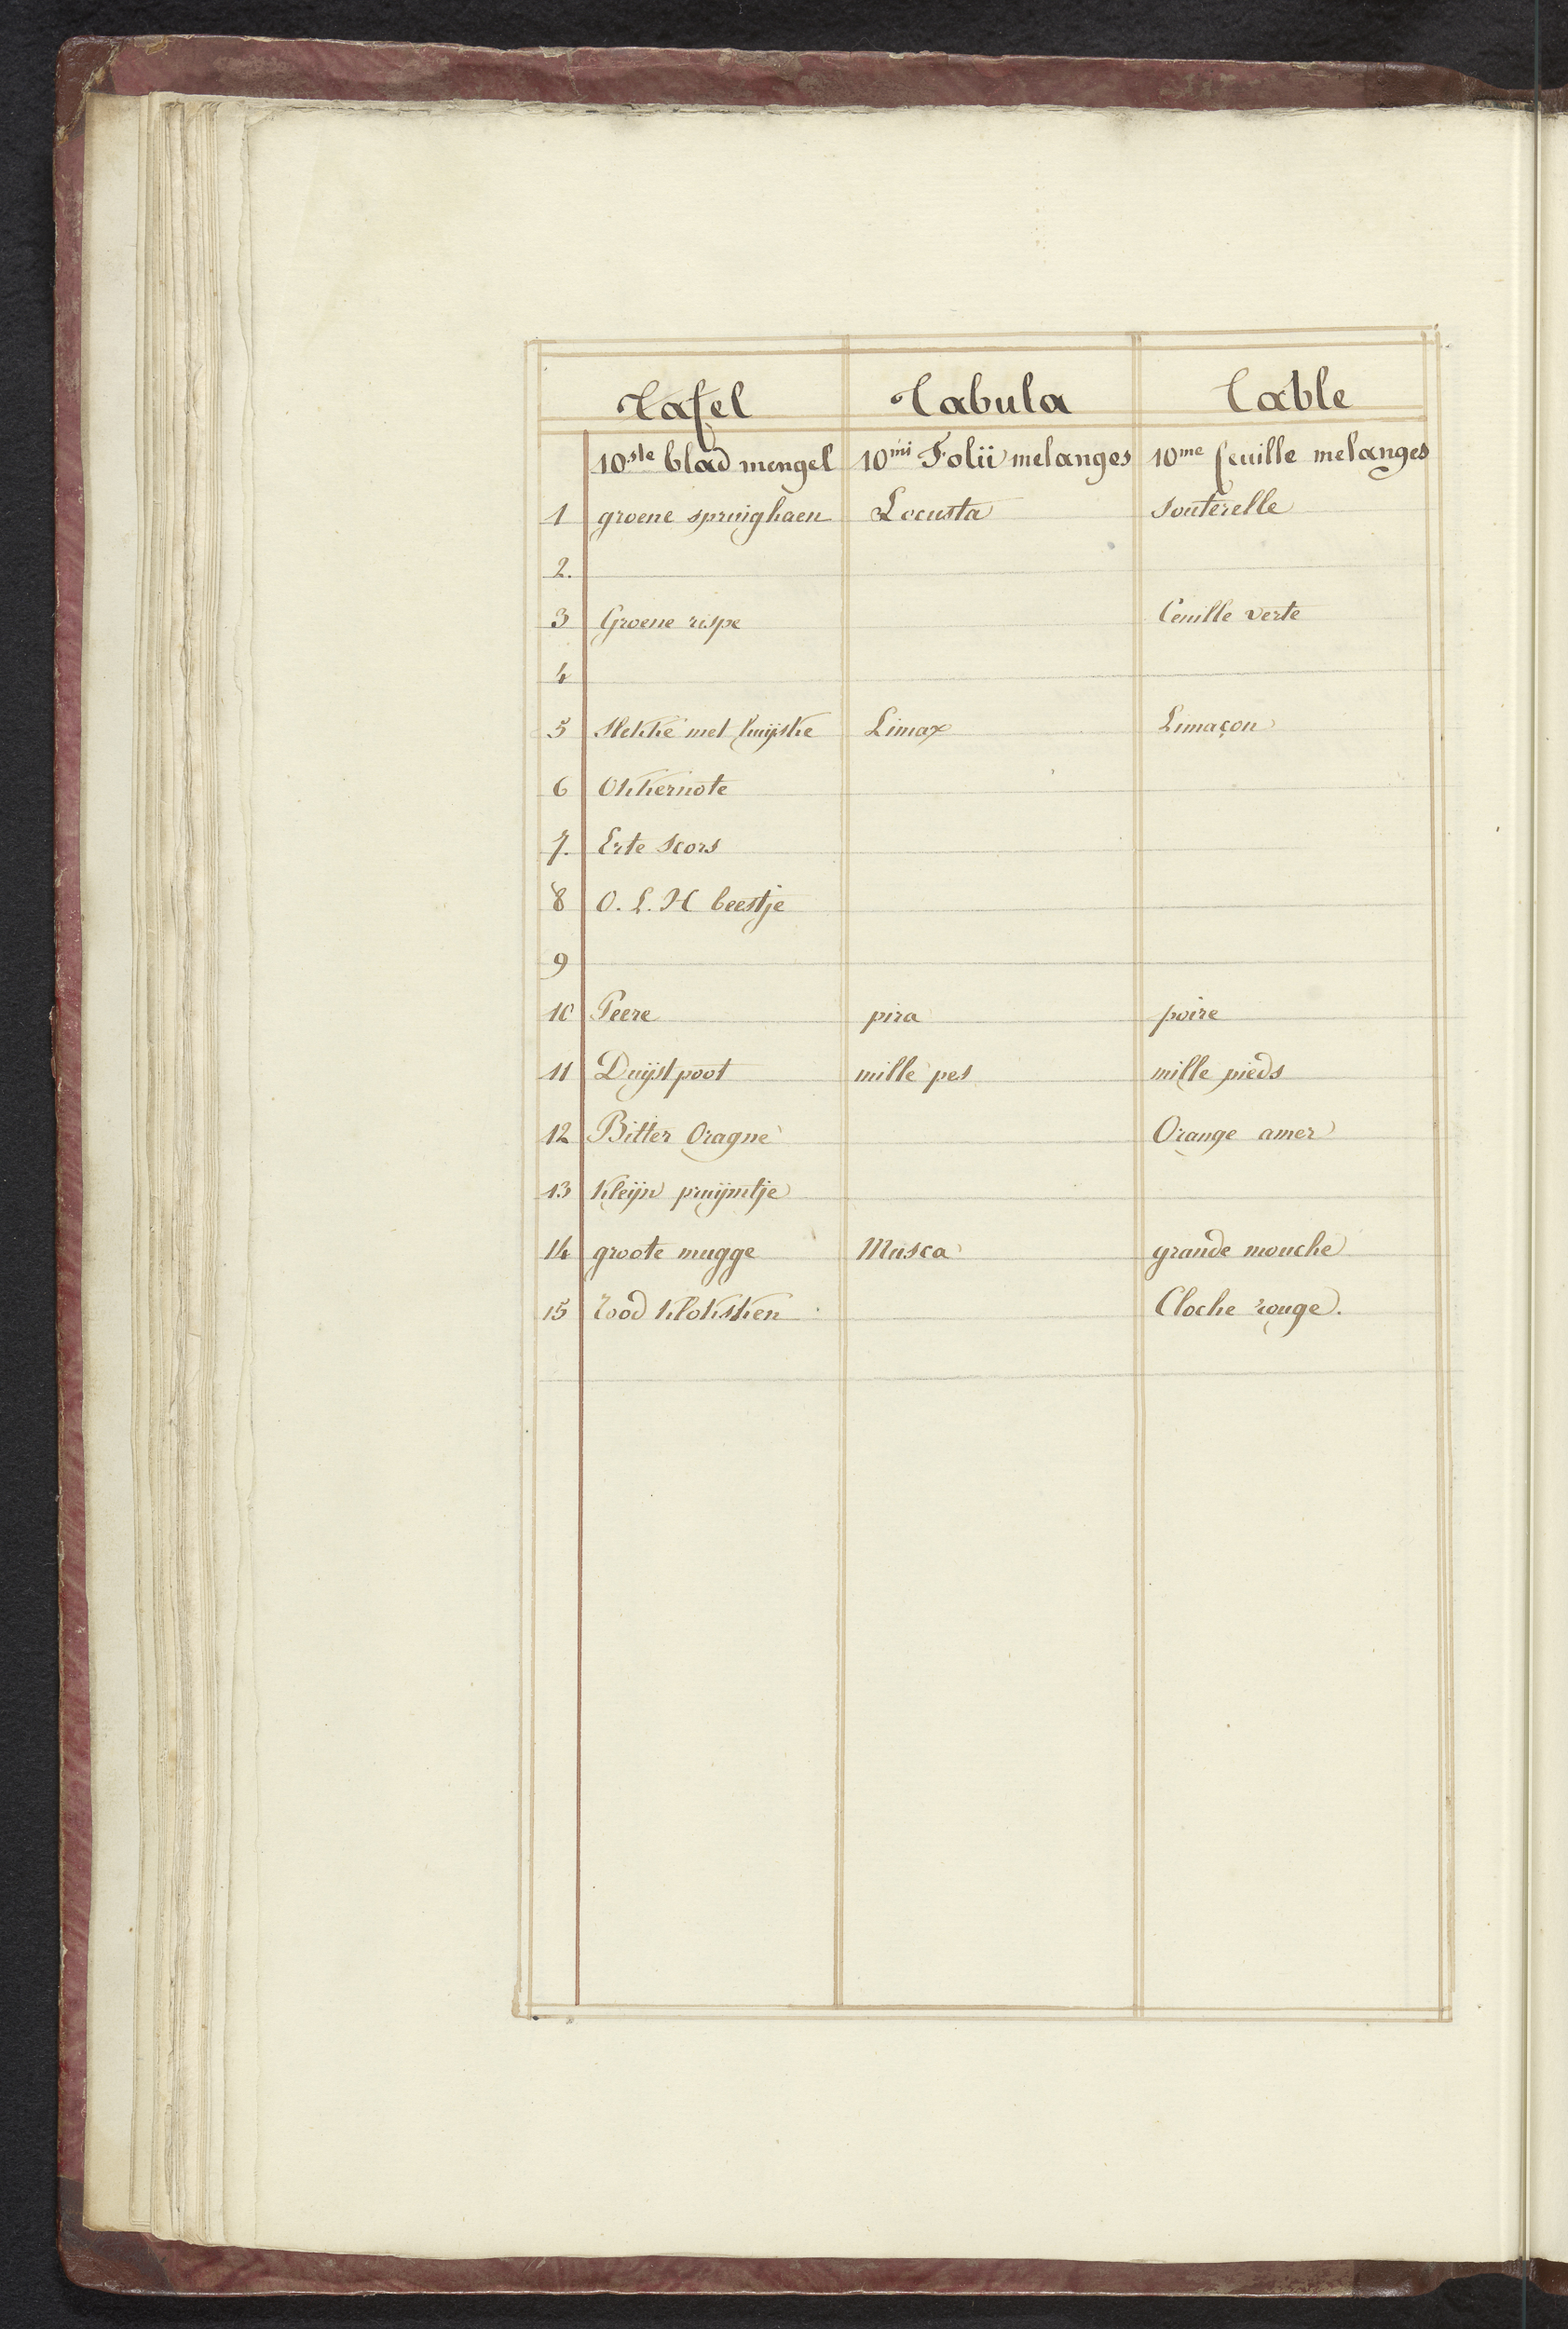 Tafel Tabula Table
10ste blad mengel 10mi Folii melanges 10me feuille melanges
1 groene springhaen Locusta Souterelle
2.
3 Groene rispe Cenille verte
4
5 Slekke met huijske Limax Limaçon
6 Okkernote
7. Erte scors
8 O. L. H beestje
9
10 Peere pira poire
11 Duijst poot mille pes mille pieds
12 Bitter Oragne Orange amer
13 kleijn pruijmtje
14 groote mugge Musca grande mouche
15 Rood kloksken Cloche rouge.